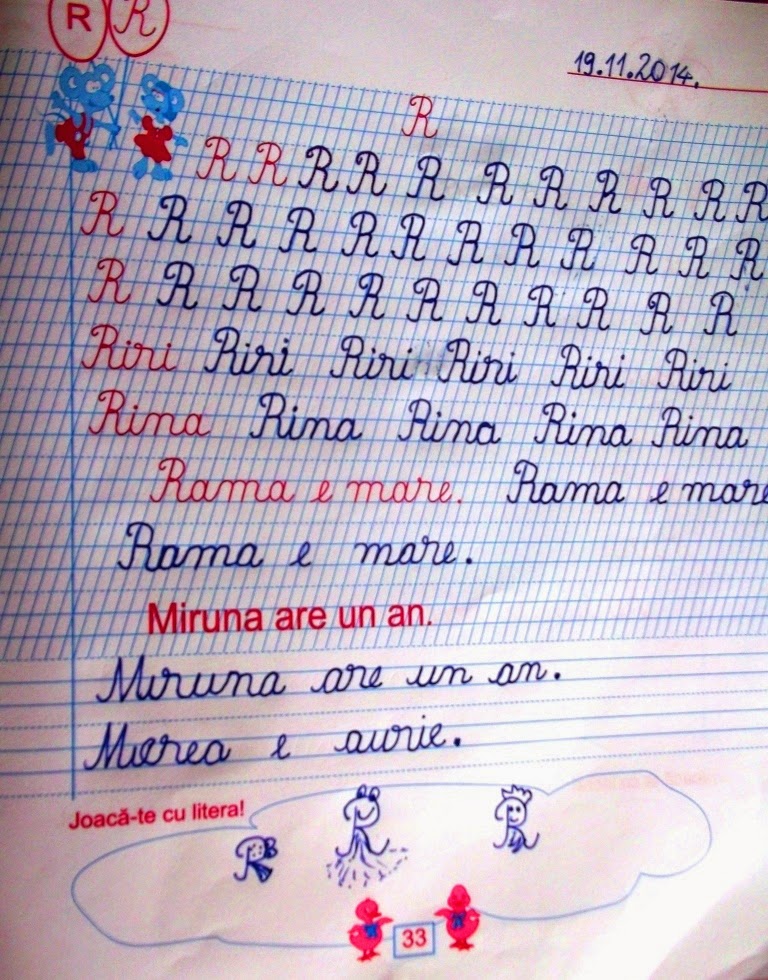 R R
19.11.2014.
R
R R R R R R R R R R R
R R R R R R R R R R R R
R R R R R R R R R R R
Riri Riri Riri Riri Riri Riri
Rina Rina Rina Rina Rina
Rama e mare. Rama e mare
Rama e mare.
Miruna are un an.
Miruna are un an.
Marea e aurie.
Joacă-te cu litera!
33